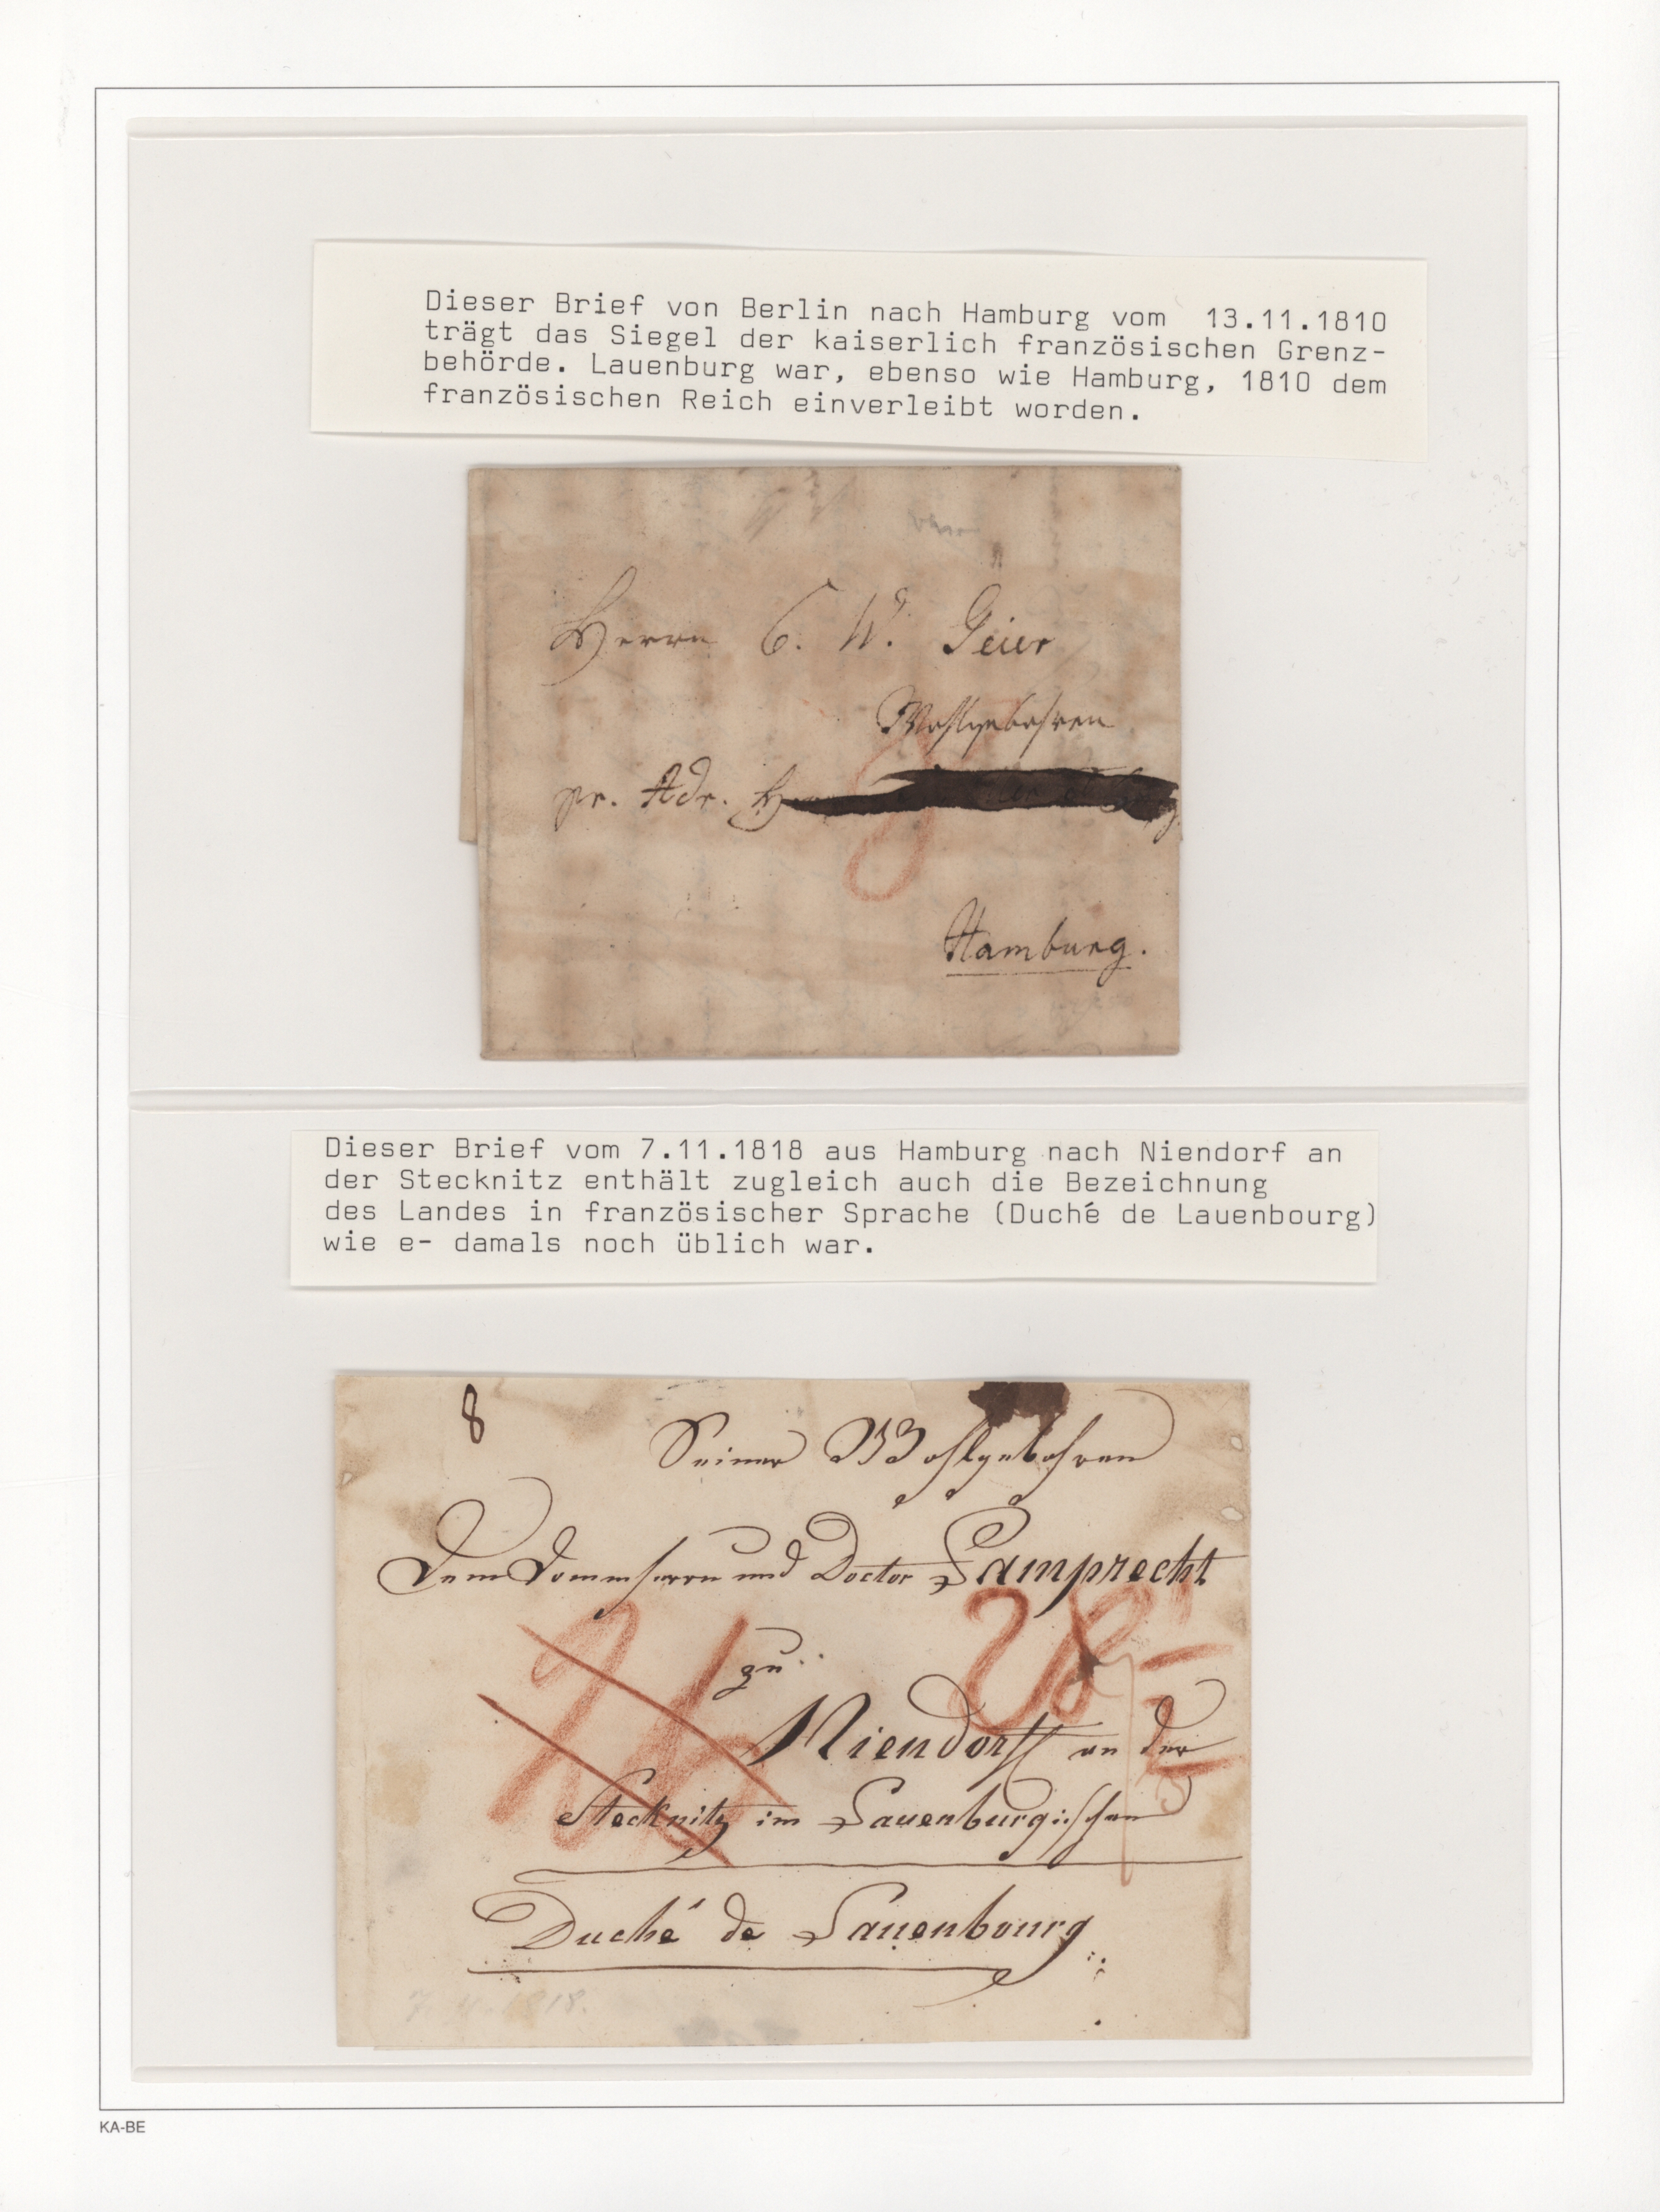 Dieser Brief von Berlin nach Hamburg vom 13.11.1810
trägt das Siegel der kaiserlich französischen Grenz-
behörde. Lauenburg war, ebenso wie Hamburg, 1810 dem
französischen Reich einverleibt worden.
Herrn C. W. Geier
Wohlgebohren
pr. Adr.
Hamburg.
Dieser Brief vom 7.11.1818 aus Hamburg nach Niendorf an
der Stecknitz enthält zugleich auch die Bezeichnung
des Landes in französischer Sprache (Duché de Lauenbourg)
wie e- damals noch üblich war.
8
Seiner Wohlgebohren
Dem Domherrn und Doctor Lamprecht
zu
Niendorff an der
Stecknitz im Lauenburgischen
Duché de Lauenbourg
7. 11. 1818.
KA-BE